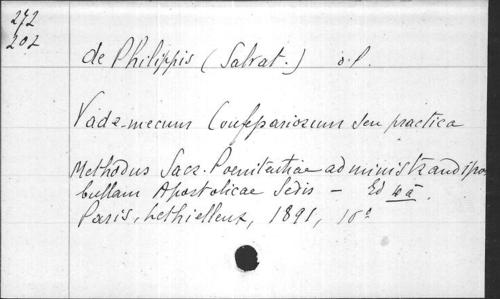 272
202
de Philippis (Salvat.) o. p.
Vade-mecum Confessariorum seu practica
Methodus Sacr. Poenitentiae administrandi post
bullam Apostolicae Sedis – Ed 4a.
Paris, Lethielleux, 1891, 16º